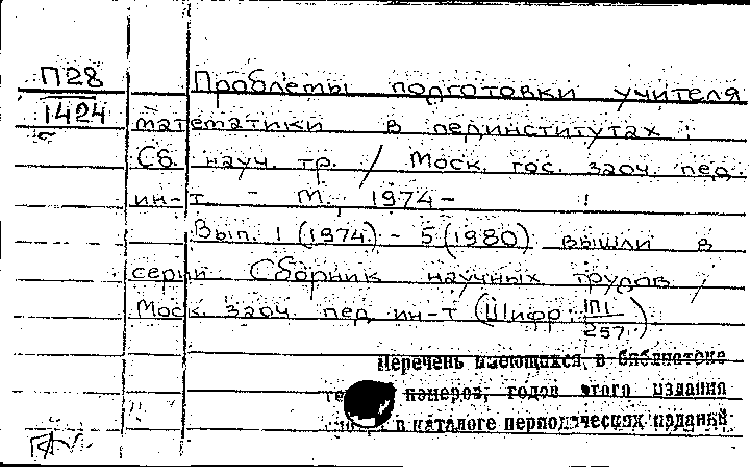 П28 Проблемы подготовки учителя
1424 математики в пединститутах :
Сб. науч. тр. / Моск. гос. заоч. пед.
ин-т - М., 1974 -
Вып. 1 (1974) - 5 (1980) вышли в
серии Сборник научных трудов /
Моск. заоч. пед. ин-т (Шифр П1/257)
Перечень имеющихся в библиотеке
номеров, годов этого издания
в каталоге периодических изданий